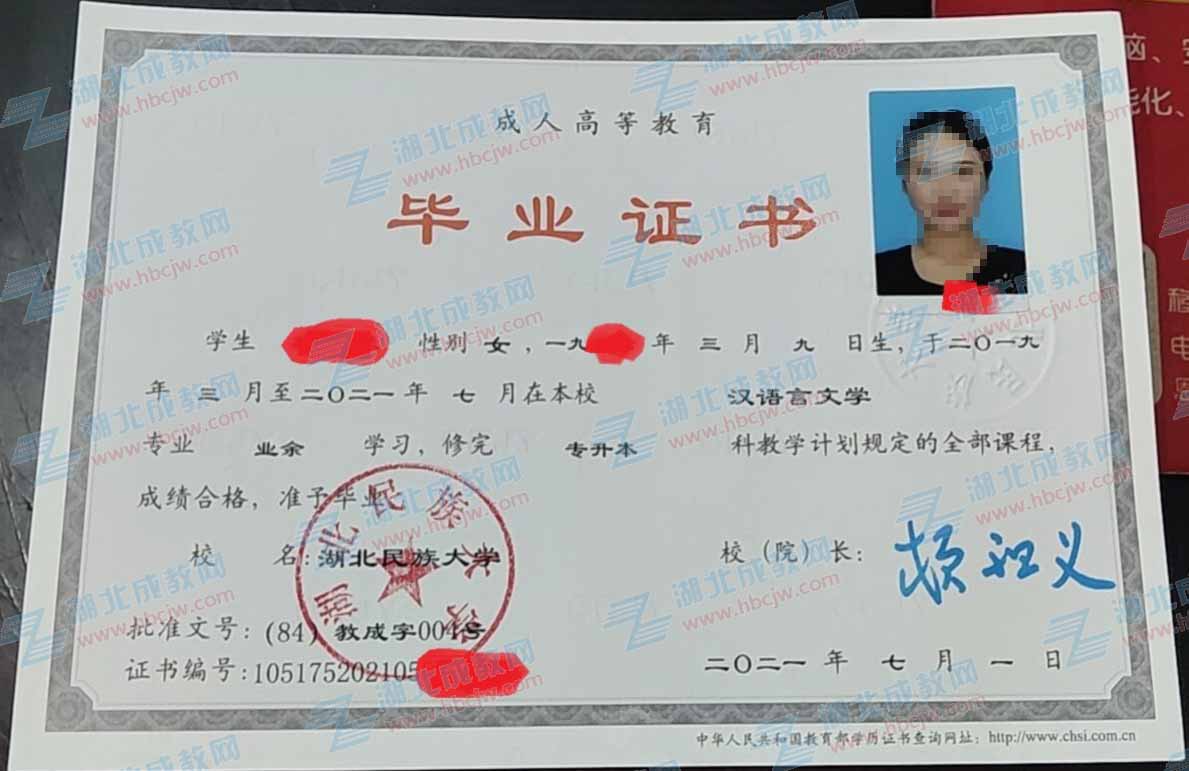 成人高等教育
毕业证书
学生 性别 女，一九 年 三 月 九 日生，于二〇一九
年 三 月至二〇二一年 七 月在本校 汉语言文学
专业 业余 学习，修完 专升本 科教学计划规定的全部课程，
成绩合格，准予毕业
校 名：湖北民族大学 校（院）长：
批准文号：(84) 教成字004号
证书编号:105175202105
二〇二一 年 七 月 一 日
中华人民共和国教育部学历证书查询网址：http://www.chsi.com.cn
湖北民族大学
湖北成教网
www.hbcjw.com
脑、
能化、
电